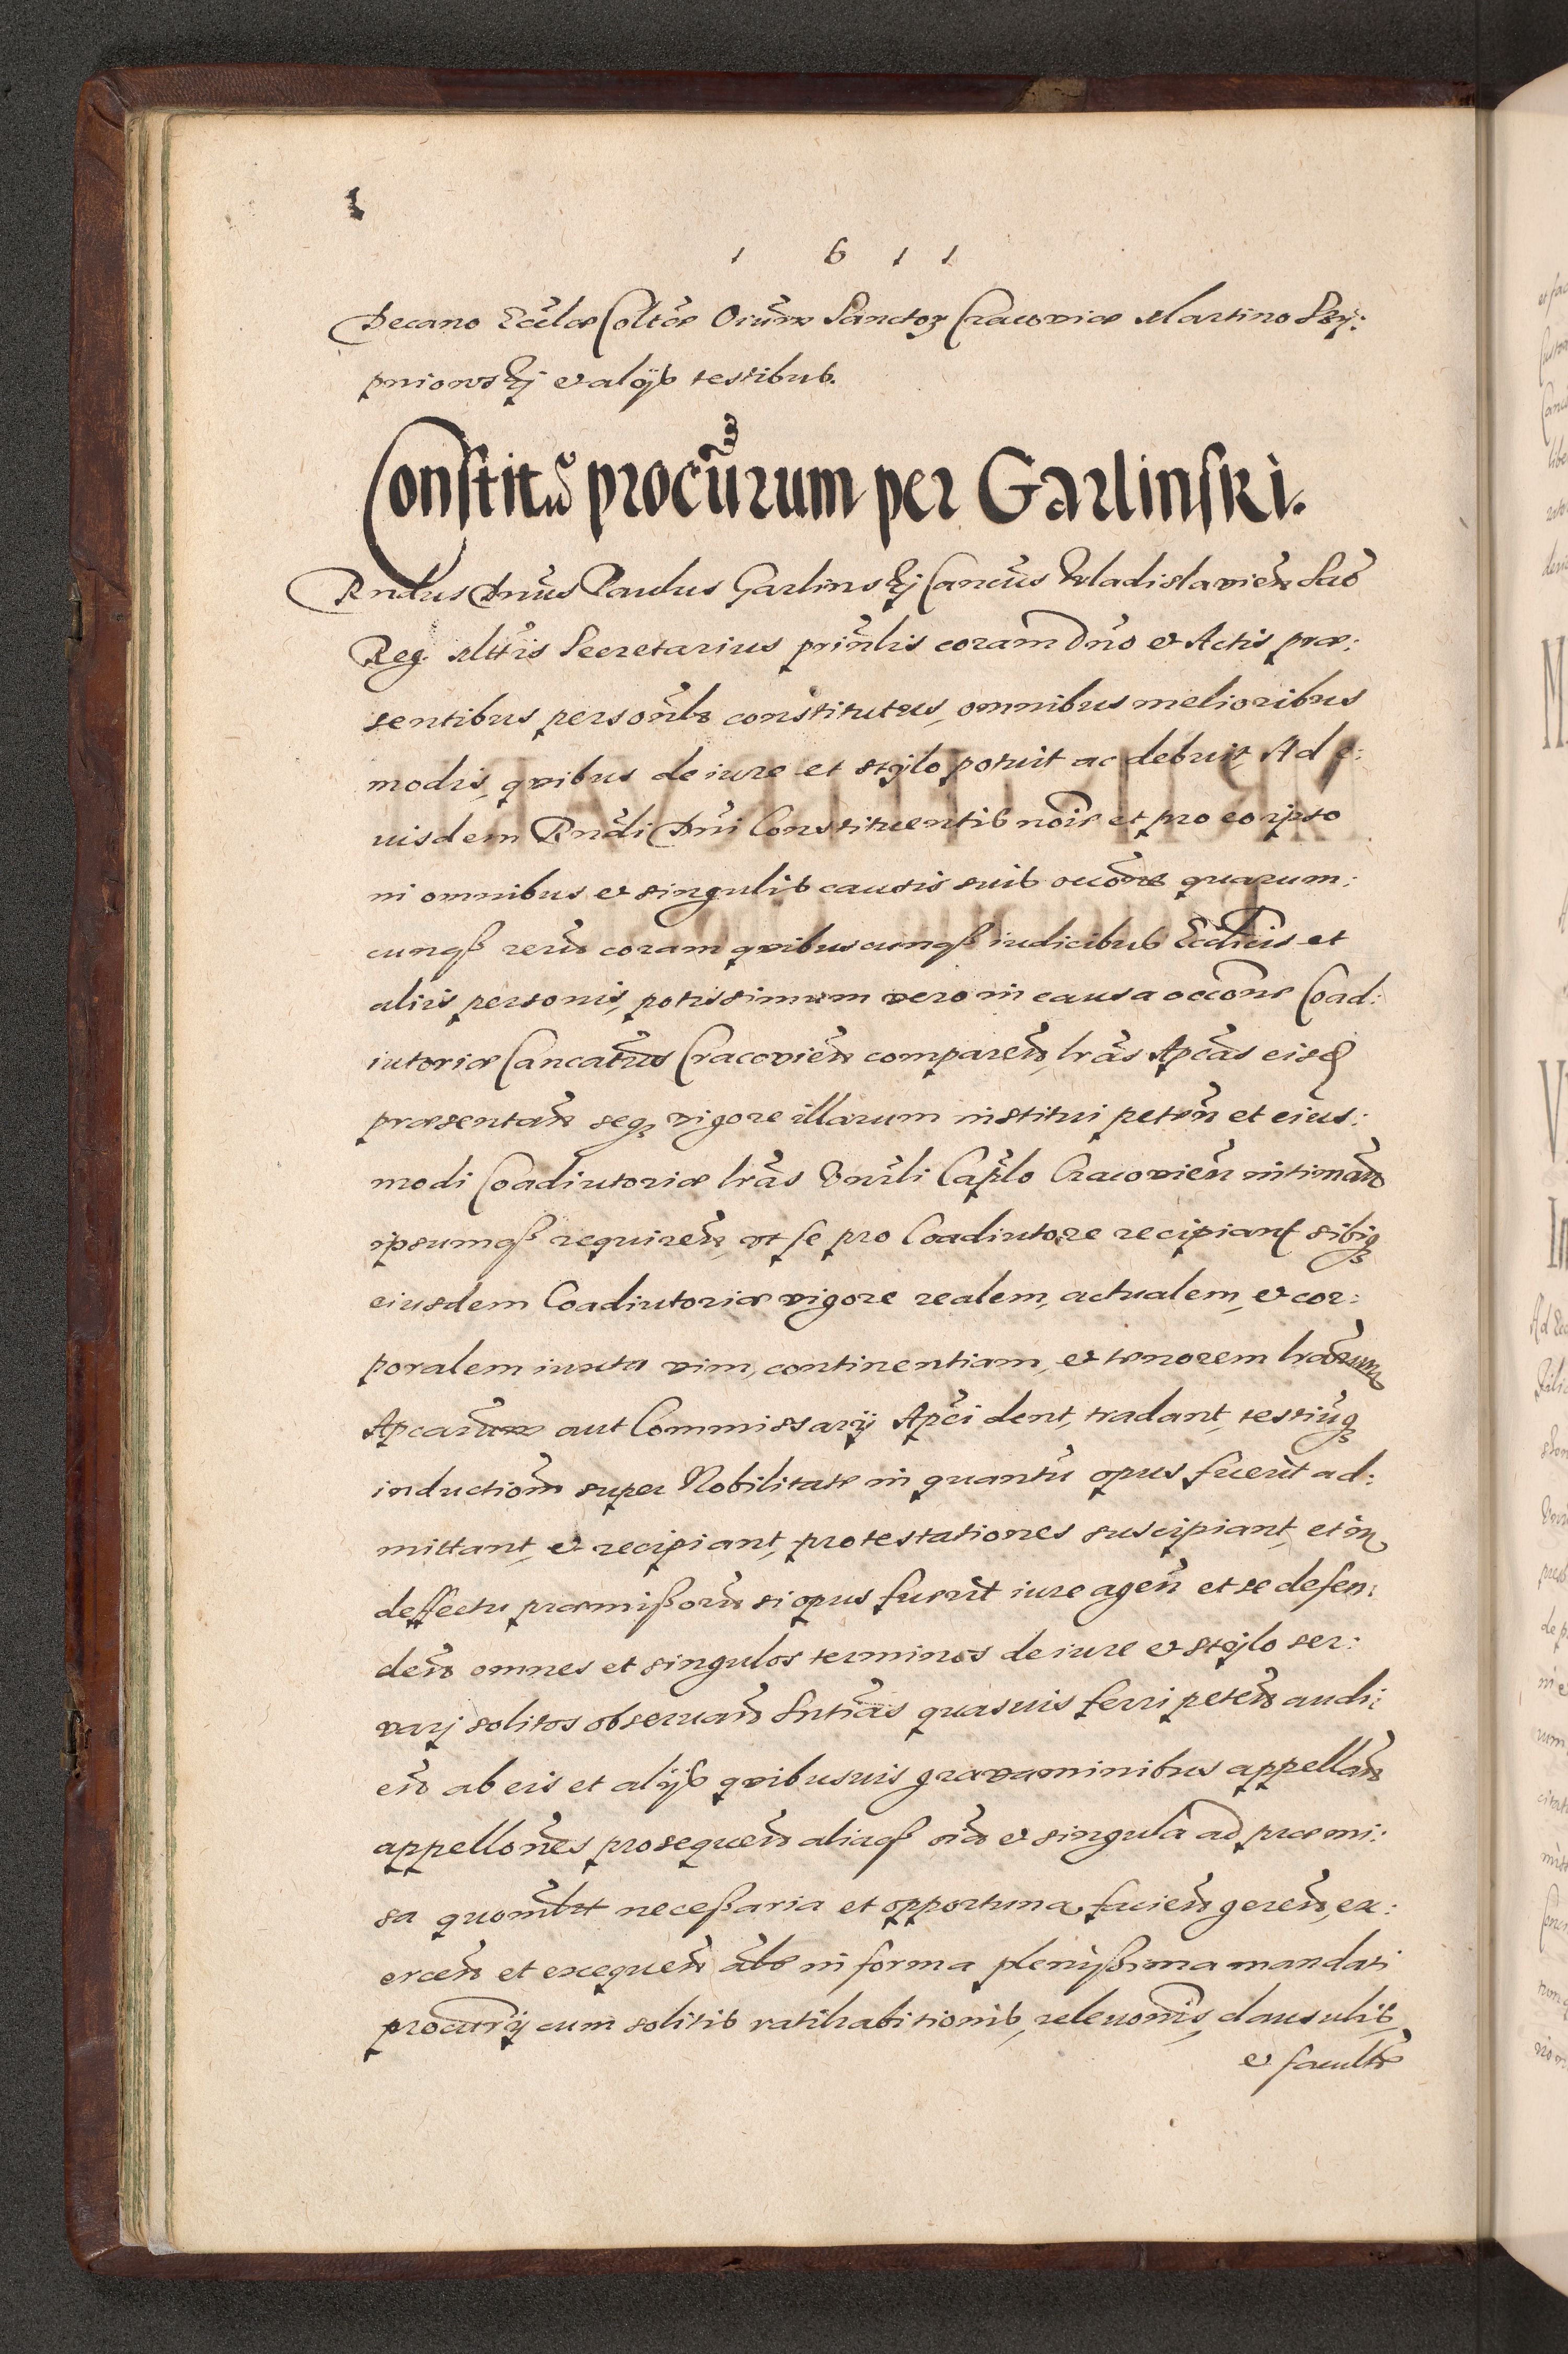 1 6 1 1
Decano Eccl̃æ Colt̃æ Oiũm Sanctoꝝ Cracoviæ Martino Skÿ:
pniowskj et alÿs testibus.
Constitũ procũrum per Garlinski.
Rndus Dñus Paulus Garlinskj Canc̃us Wladislavień Sac̃
Reg. Mttis Secretarius prinl̃is coram Dño et Actis præ:
sentibus personl̃r constitutus, omnibus melioribus
modis, quibus de iure et stylo potuit ac debuit Ad e:
uisdem Rndi Dñi Constituentis nõie et pro eo ipso
in omnibus et singulis causis suis occõne quarum:
cunqß rerũ coram quibuscunqß iudicibus Eccl̃icis et
aliis personis, potissimum vero in causa occõne Coad:
iutoriæ Cancatus Cracovień compareñ, lr̃as Apc̃as eisd̃
præsentañ seqꝫ vigore illarum institui peteñ et eius:
modi Coadiutoriæ lr̃as Vnrl̃i Capl̃o Cracovień intimañ
ipsumqß requireñ, vt se pro Coadiutore recipiant sibiqꝫ
eiusdem Coadiutoriæ vigore realem, actualem, et cor:
poralem iuxta vim, continentiam, et tenorem lr̃arum
Apcarum aut Commissarÿ Apc̃i dent, tradant, testiũqꝫ
inductiom̃ super Nobilitate in quantũ opus fuerit ad:
mittant, et recipiant, protestationes suscipiant, et in
deffectu præmißorũ si opus fuerit iure ageñ et se defen:
deñ omnes et singulos terminos de iure et stylo ser:
varj solitos obseruañ Sntĩas quasuis ferri peteñ audi:
eñ ab eis et alÿs quibusuis gravaminibus appellañ
appellões prosequeñ aliaqß oĩa et singula ad præmi:
sa quoml̃t neceßaria et opportuna facieñ gereñ, ex:
erceñ et exequeñ als̃ in forma plenißima mandati
procurÿ cum solitis ratihabitionis, releuõnis, clausulis,
et facult̃e